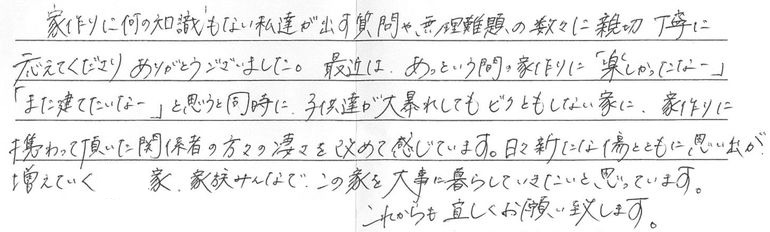 家作りに何の知識もない私達が出す質問や、無理難題の数々に親切丁寧に
応えてくださりありがとうございました。最近は、あっという間の家作りに「楽しかったなー」
「また建てたいなー」と思うと同時に、子供達が大暴れしてもビクともしない家に、家作りに
携わって頂いた関係者の方々の凄さを改めて感じています。日々新たな傷とともに思い出が
増えていく 家、家族みんなで、この家を大事に暮らしていきたいと思っています。
これからも宜しくお願い致します。